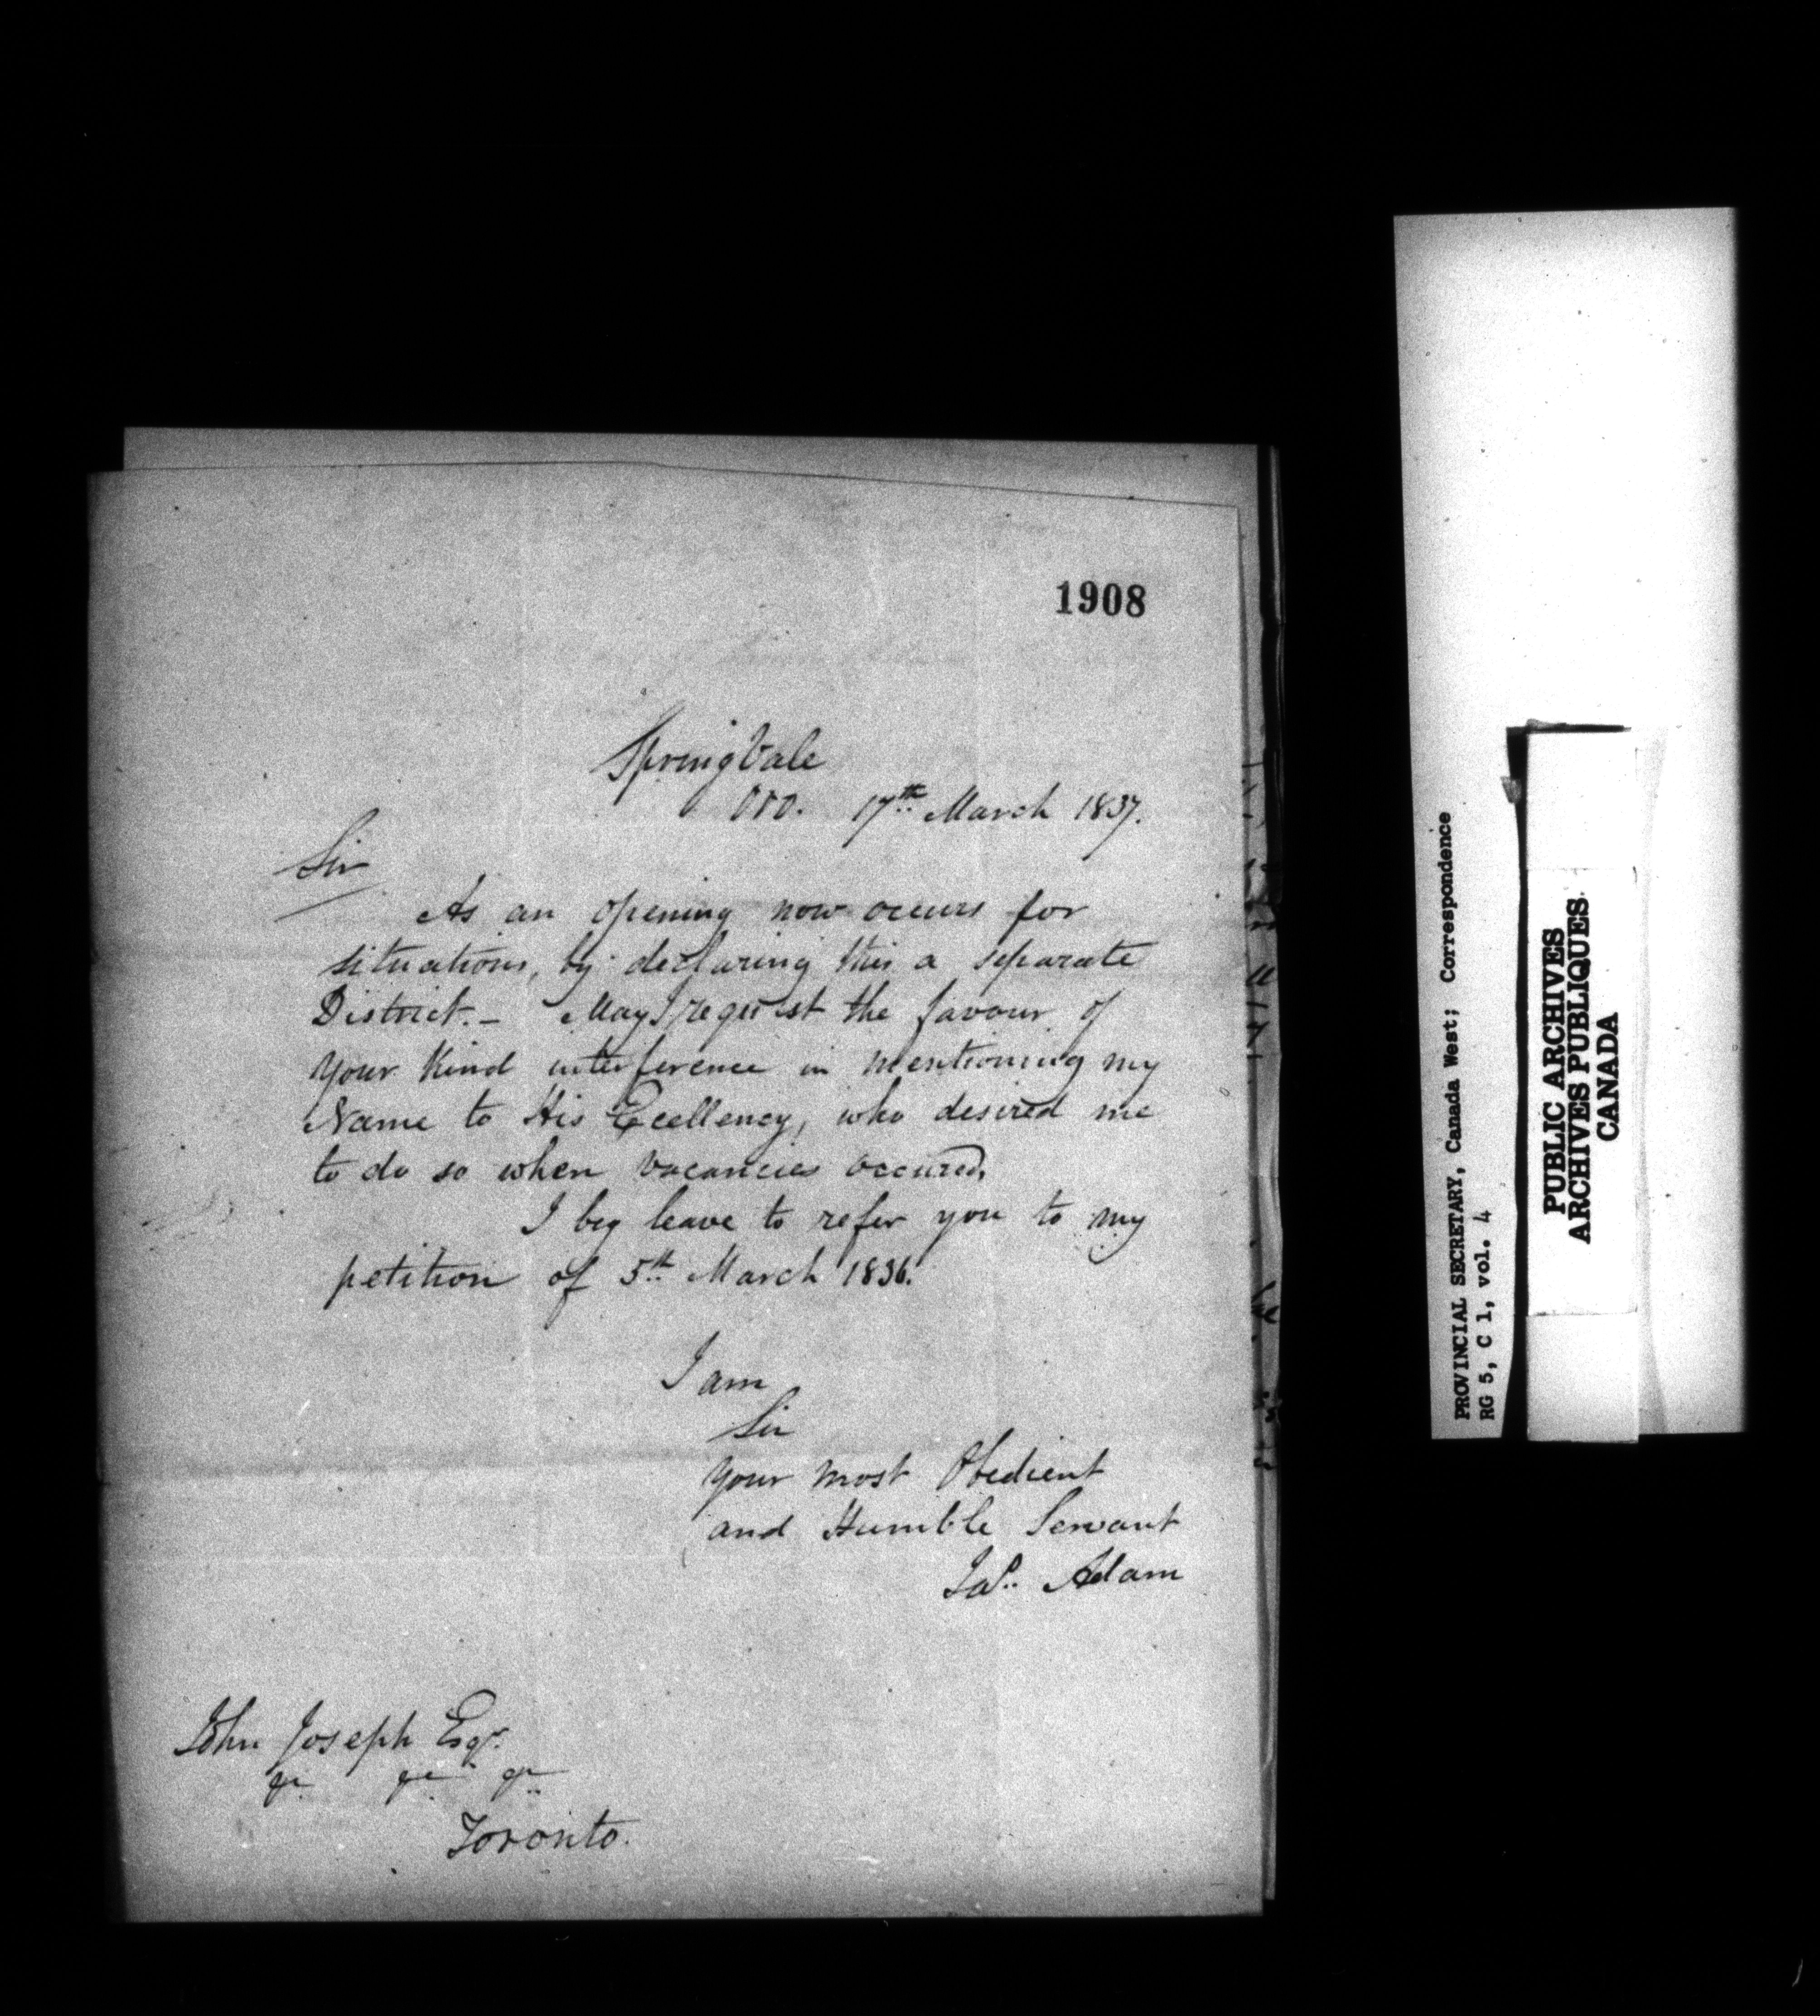 1908
Springvale
Oro. 17th March 1837.
Sir
As an opening now occurs for
situations, by declaring this a separate
District. - May I request the favour of
your kind interference in mentioning my
Name to His Excellency, who desired me
to do so when vacancies occured.
I beg leave to refer you to my
petition of 5th March 1836.
I am
Sir
your most Obedient
and Humble Servant
Jas. Adam
John Joseph Esqr.
Toronto.
PROVINCIAL SECRETARY, Canada West; Correspondence
RG 5, C 1, vol. 4
PUBLIC ARCHIVES
ARCHIVES PUBLIQUES
CANADA